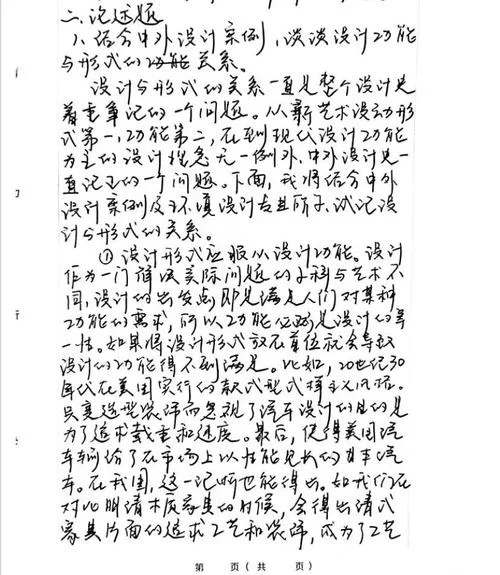 二、论述题
1、结合中外设计案例，谈谈设计功能
与形式的关系。
设计与形式的关系一直是整个设计史
着重争论的一个问题。从新艺术运动形
式第一，功能第二，在到现代设计功能
为主的设计理念无一例外，中外设计史一
直记的一个问题。下面，我将结合中外
设计案例及设计，试论设
计与形式的关系。
①设计形式应服从设计功能。设计
作为一门解决实际问题的学科与艺术不
同，设计的出发点即是满足人们对某种
功能的需求，所以功能必须是设计的第
一性。如果将设计形式放在首位就会导致
设计的功能得不到满足。比如，20世纪30
年代在美国实行的样式主义风格。
只变造型装饰而忽视了汽车设计的目的是
为了追求载重和速度。最后，使得美国汽
车输给了在市场上以性能见长的日本汽
车。在我国，这一论断也能得出。如我们在
对比明清木质家具的时候，会得出清式
家具片面的追求工艺和装饰，成为了工艺
第 页（共 页）